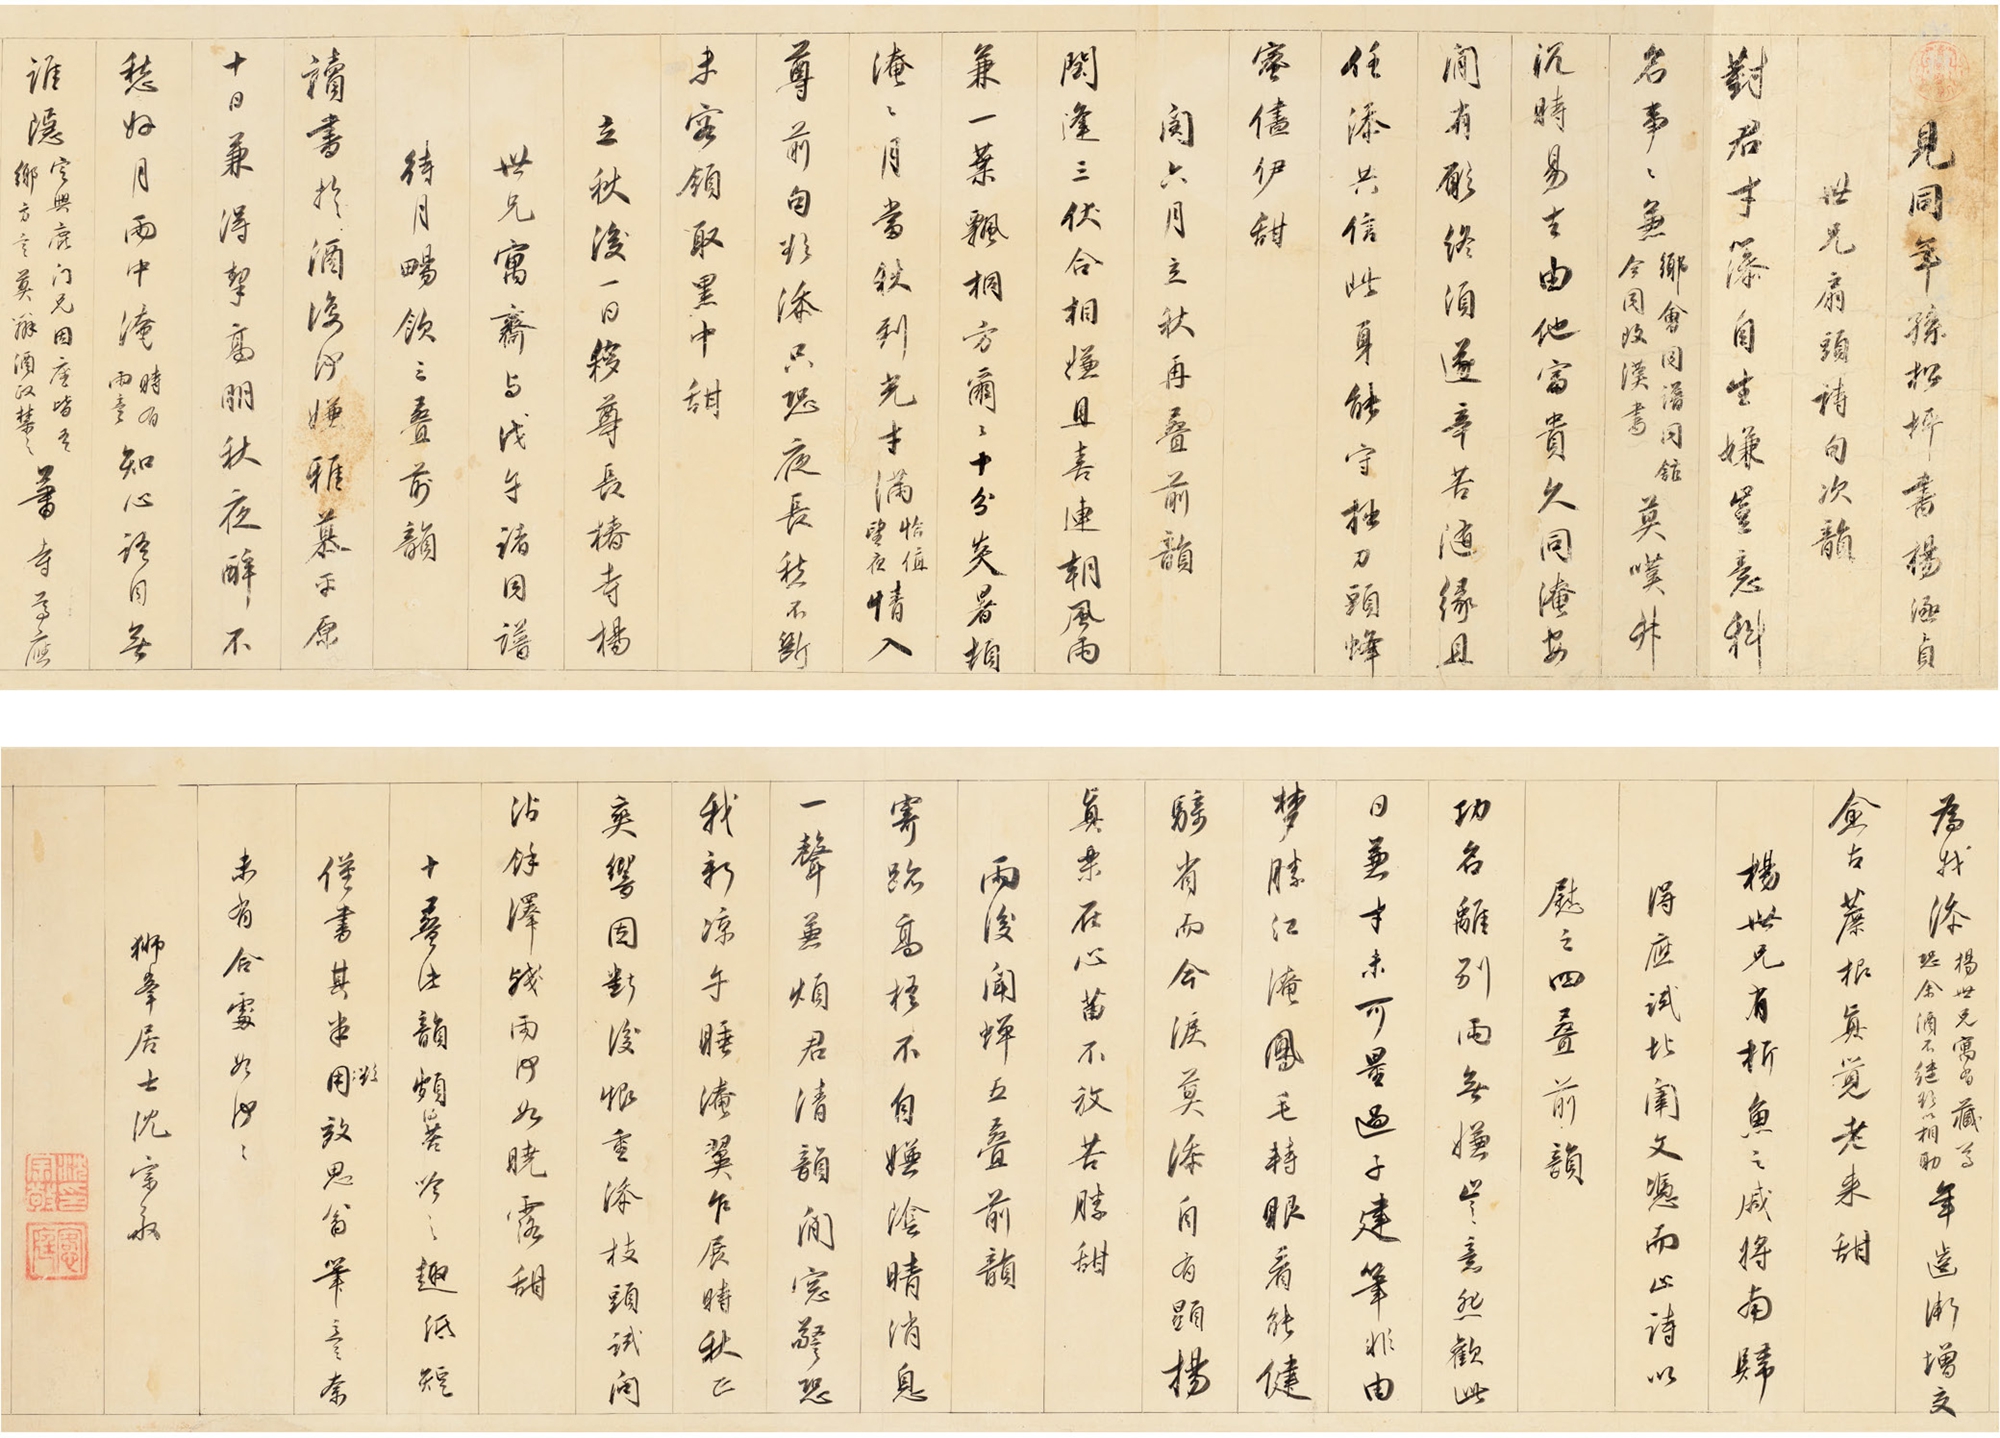 見同年孫松坪書楊涵貞
世兄扇頭詩句次韻
對君才藻自生嫌豈意科
名事〻兼鄉會同譜同館今同收漢書莫嘆升
沉時易去由他富貴久同淹安
閒有願終須遂辛苦隨緣且
任添共信此身能守拙刀頭蜂
蜜儘伊甜
閏六月立秋再疊前韻
閏逢三伏合相嫌且喜連朝風雨
兼一葉飄桐方爾〻十分炎暑頓
淹〻月當秋到光才滿恰值望夜情入
尊前句欲添只恐夜長愁不斷
未容領取黑中甜
立秋後一日移尊長椿寺楊
世兄寓齋與戊午諸同譜
待月暢飲三疊前韻
讀書於酒復何嫌雅慕平原
十日兼得挈高朋秋夜醉不
愁好月雨中淹時有雨意知心語因無
誰隱定興鹿門兄因座皆吾鄉方言莫辦酒政禁之蕭寺尊應
為我添楊世兄寓有藏尊恐余酒不繼欲以相助年齒漸增交
僉古蔗根真覺老來甜
楊世兄有析魚之戚將南歸
得應試北闈文慰而止詩以
慰之四疊前韻
功名離別兩無嫌豈意愁歡此
日兼才未可量過子建筆非由
夢勝江淹鳳毛轉眼看能健
驥首而今淚莫添自有顯揚
真樂在心苗不放苦勝甜
雨後聞蟬五疊前韻
寄跡高梧不自嫌陰晴消息
一聲兼煩君清韻閒窗警恐
我新涼午睡淹翼乍展時秋正
爽響因斷後恨重添枝頭試問
沾餘澤殘雨何如曉露甜
十疊佳韻頗昔吟〻趣紙短
僅書其半用欲效思翁筆意奈
未有合處如何〻
獅峯居士沈宗敬